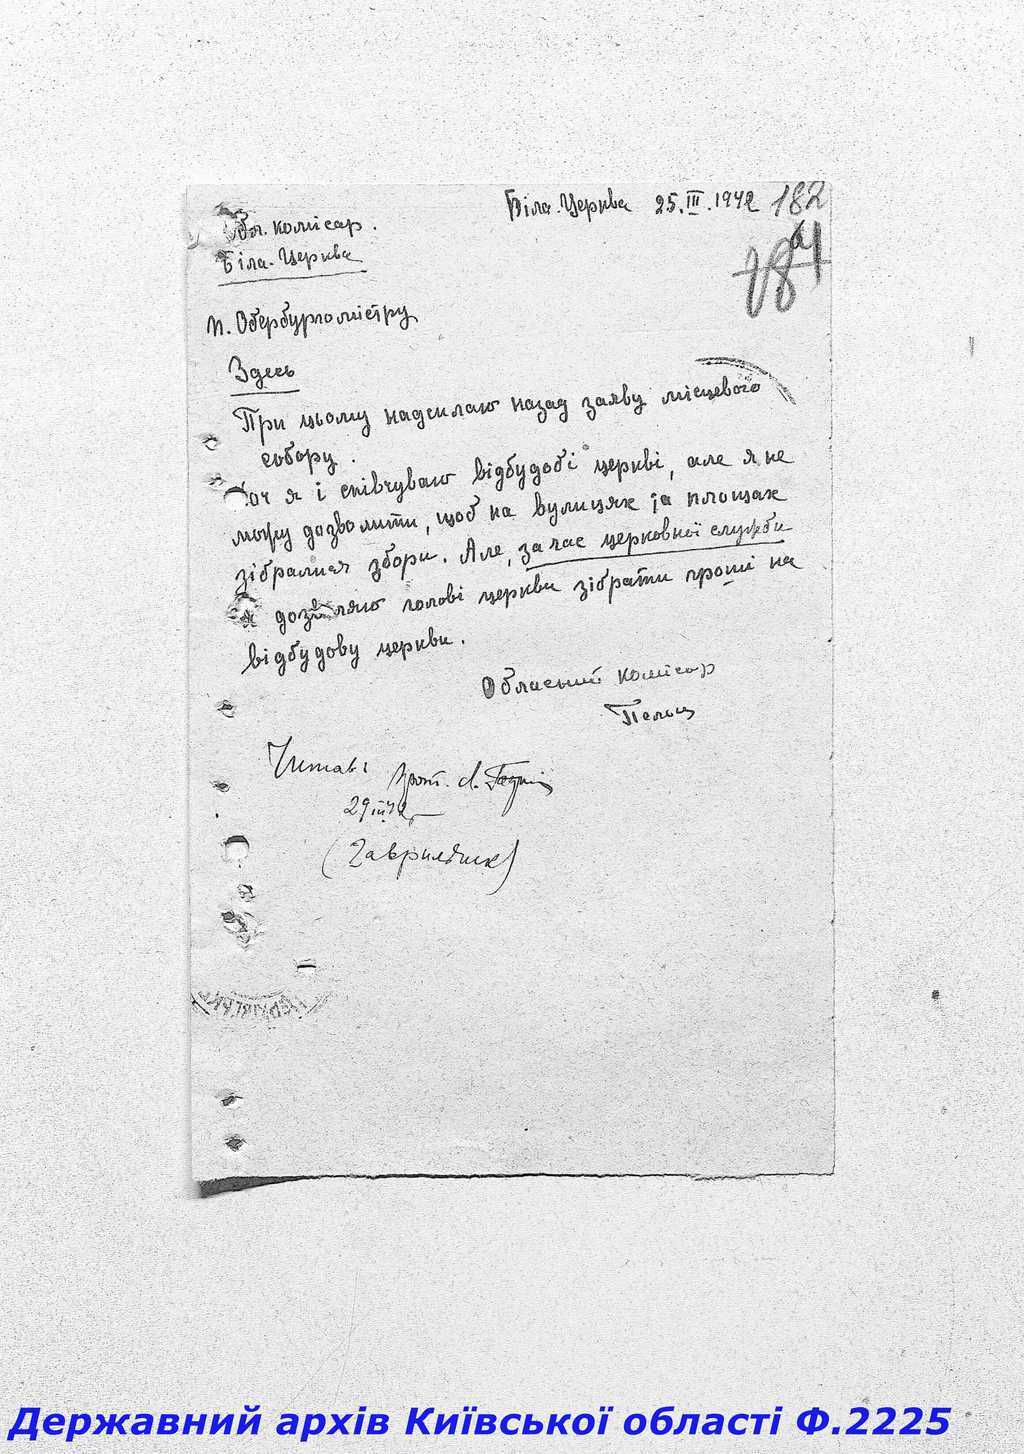 Біла-Церква 25.III.1942 182
Обл. комісар.
Біла-Церква
181
п. Обербургомістру
Здесь
При цьому надсилаю назад заяву місцевого
собору.
Хоч я і співчуваю відбудові церкві, але я не
можу дозволити, щоб на вулицях та площах
зібралися збори. Але, за час церковної служби
я дозволяю голові церкви зібрати гроші на
відбудову церкви.
Обласний комісар
Пельц
Читав:
Прот.
29 III 42